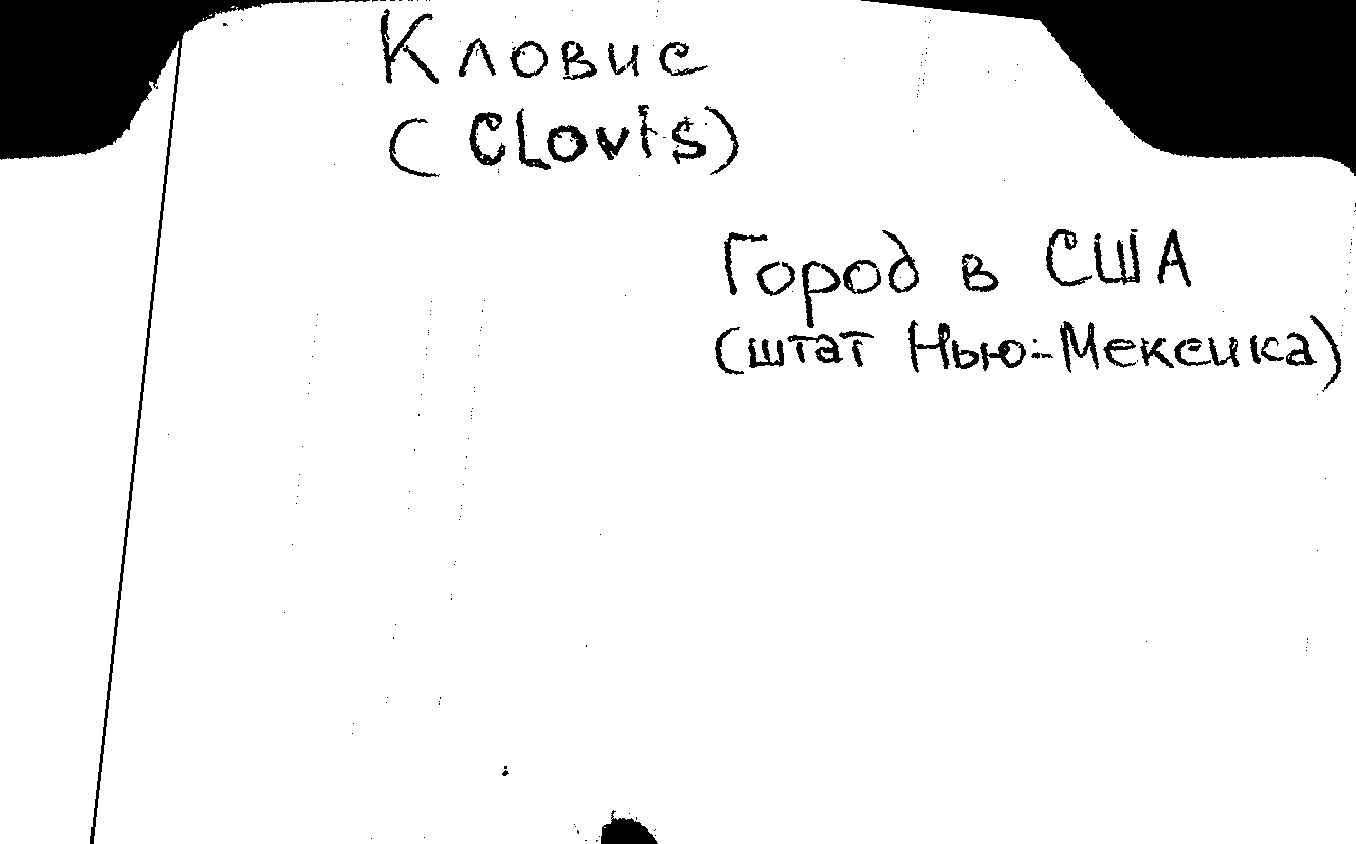 Кловис
(Clovis)
Город в США
(штат Нью-Мексика)